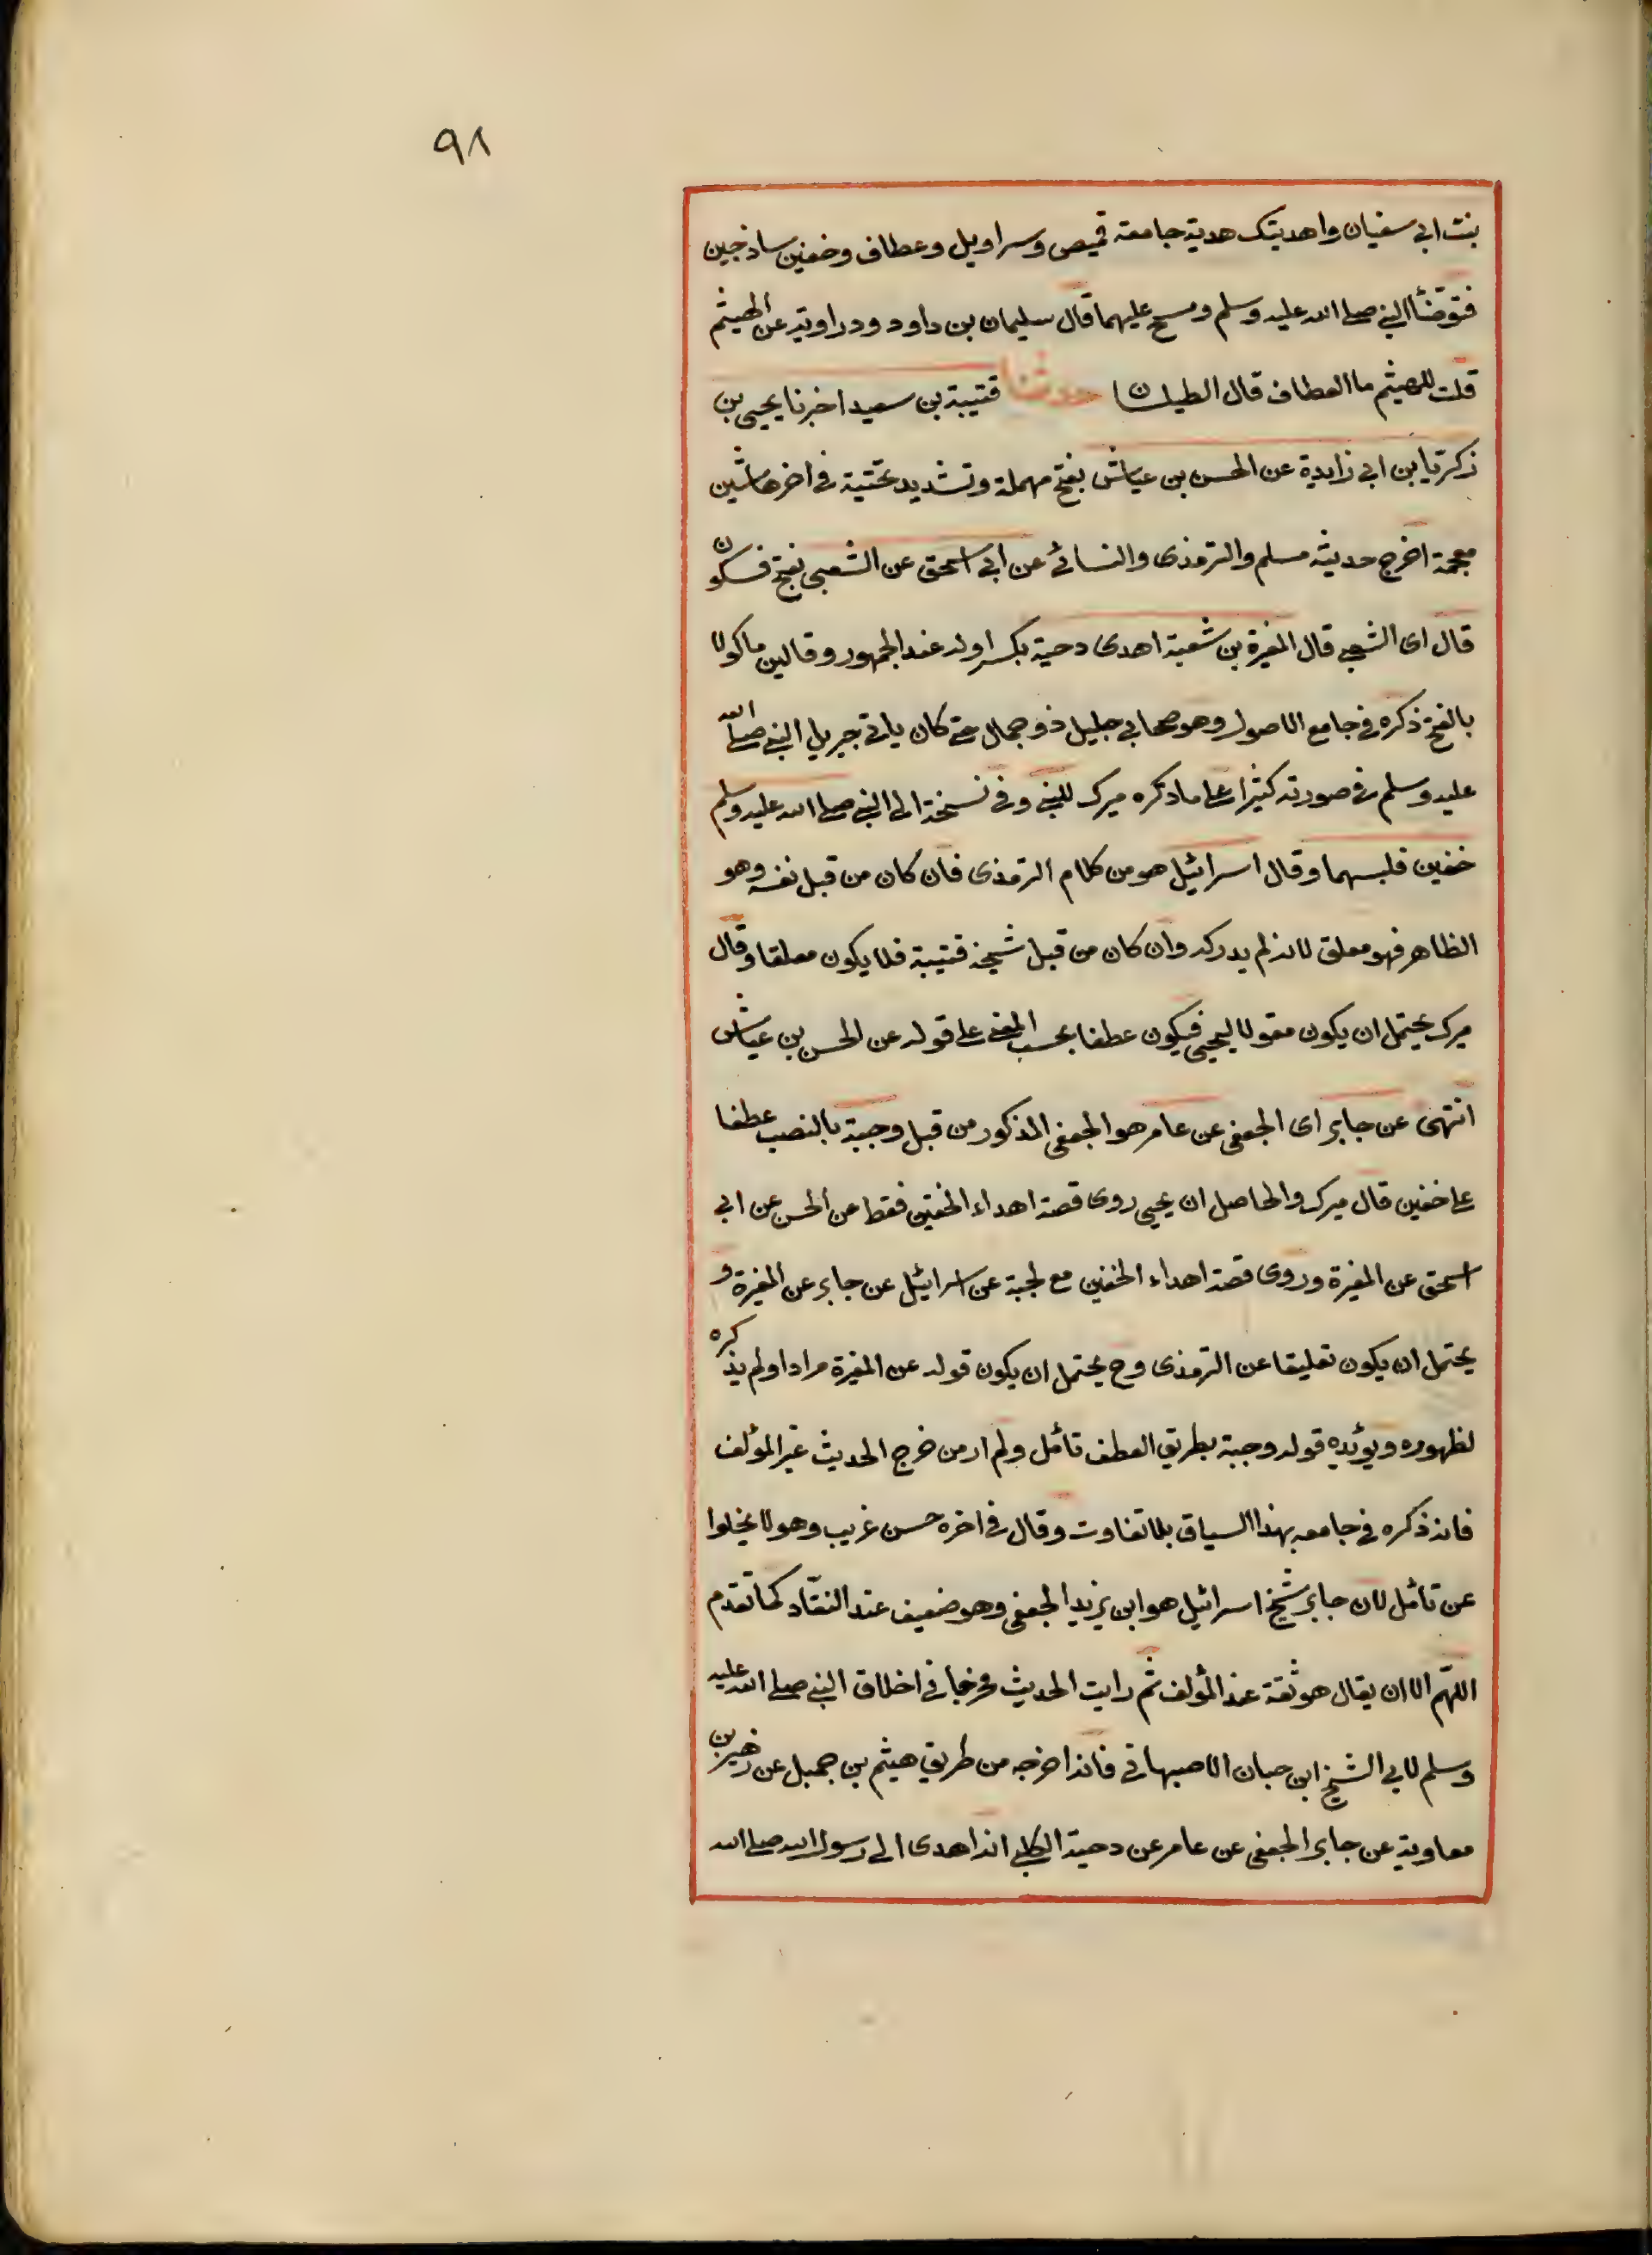 ٩٨
بنت ابي سفيان واهديتك هدية جامعة قميص وسراويل وعطاف وخفين ساذجين
فتوضّأ النبي صلى الله عليه وسلم ومسح عليهما قال سليمان بن داود وراويه عن الهيثم
قلت للهيثم ما العطاف قال الطيلسان حدثنا قتيبة بن سعيد اخبرنا يحيى بن
زكريا بن ابي زايدة عن الحسن بن عياش بفتح مهملة وتشديد تحتية في اخرها شين
معجمة اخرج حديثه مسلم والترمذى والنسائي عن ابي اسحق عن الشعبى بفتح فسكون
قال اى الشعبى قال المغيرة بن شعبة اهدى دحية بكسر اوله عند الجمهور وقال ابن ماكولا
بالفتح ذكره في جامع الاصول وهو صحابي جليل ذو جمال حتى كان ياتي جبريل النبي صلى الله
عليه وسلم في صورته كثيرا على ما ذكره ميرك للنبي وفي نسخة الى النبي صلى الله عليه وسلم
خفين فلبسهما وقال اسرائيل هو من كلام الترمذى فان كان من قبل نفسه وهو
الظاهر فهو معلق لانه لم يدركه وان كان من قبل شيخه قتيبة فلا يكون معلقا وقال
ميرك يحتمل ان يكون مقولا ليحيى فيكون عطفا بحسب المعنى على قوله عن الحسن بن عياش
انتهى عن جابر اى الجعفى عن عامر هو الجعفى المذكور من قبل وجبة بالنصب عطفا
على خفين قال ميرك والحاصل ان يحيى روى قصة اهداء الخفين فقط عن الحسن عن ابي
اسحق عن المغيرة وروى قصة اهداء الخفين مع لجبة عن اسرائيل عن جابر عن المغيرة و
يحتمل ان يكون تعليقا عن الترمذى وح يحتمل ان يكون قوله عن المغيرة مرادا ولم يذكره
لظهوره ويؤيده قوله وجبة بطريق العطف تأمل ولم ار من خرج الحديث غير المؤلف
فانه ذكره في جامعه بهذا السياق بلا تفاوت وقال في اخره حسن غريب وهو لا يخلوا
عن تأمل لان جابر شيخ اسرائيل هو ابن يزيد الجعفى وهو ضعيف عند النقّاد كما تقدم
اللهّم الا ان يقال هو ثقة عند المؤلف ثم رايت الحديث مخرجا في اخلاق النبي صلى الله عليه
وسلم لابي الشيخ ابن حبان الاصبهاني فانه اخرجه من طريق هيثم بن جميل عن زهير بن
معاوية عن جابر الجعفى عن عامر عن دحية الكلبي انه اهدى الى رسول الله صلى الله